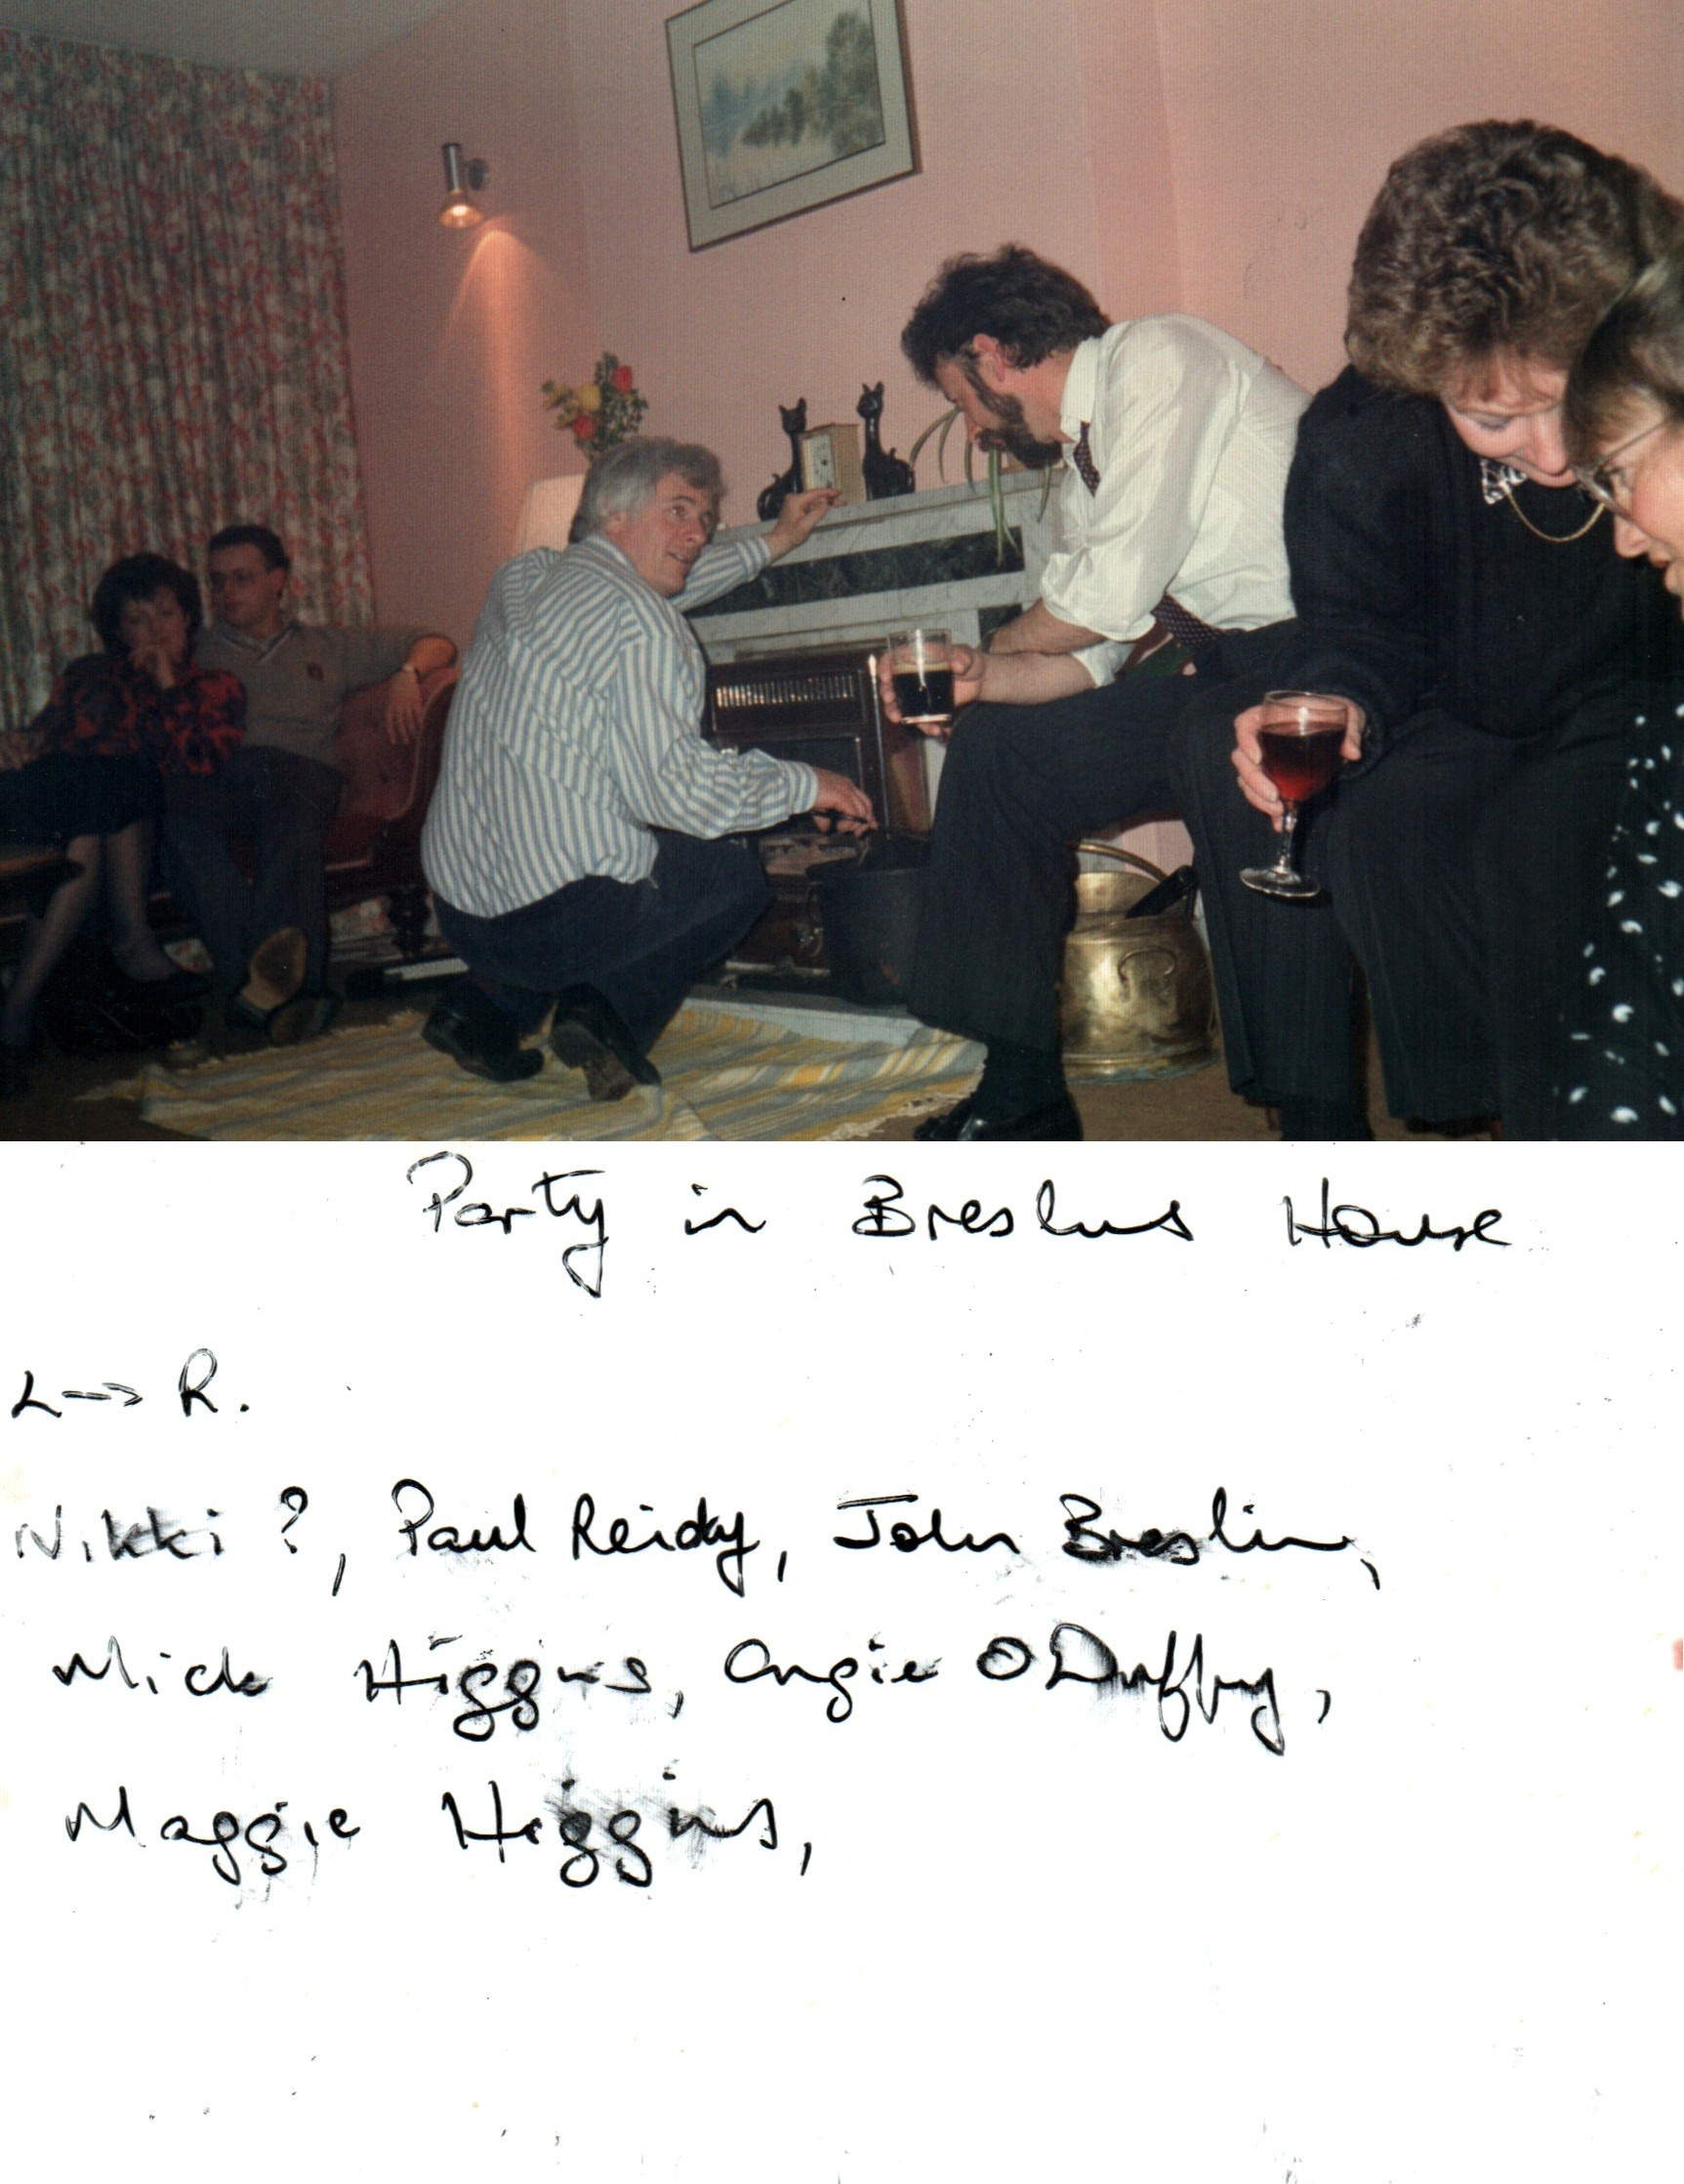 Party in Breslins House
L--> R.
Nikki ?, Paul Reidy, John Breslin,
Mick Higgins, Angie O Duffy,
Maggie Higgins,